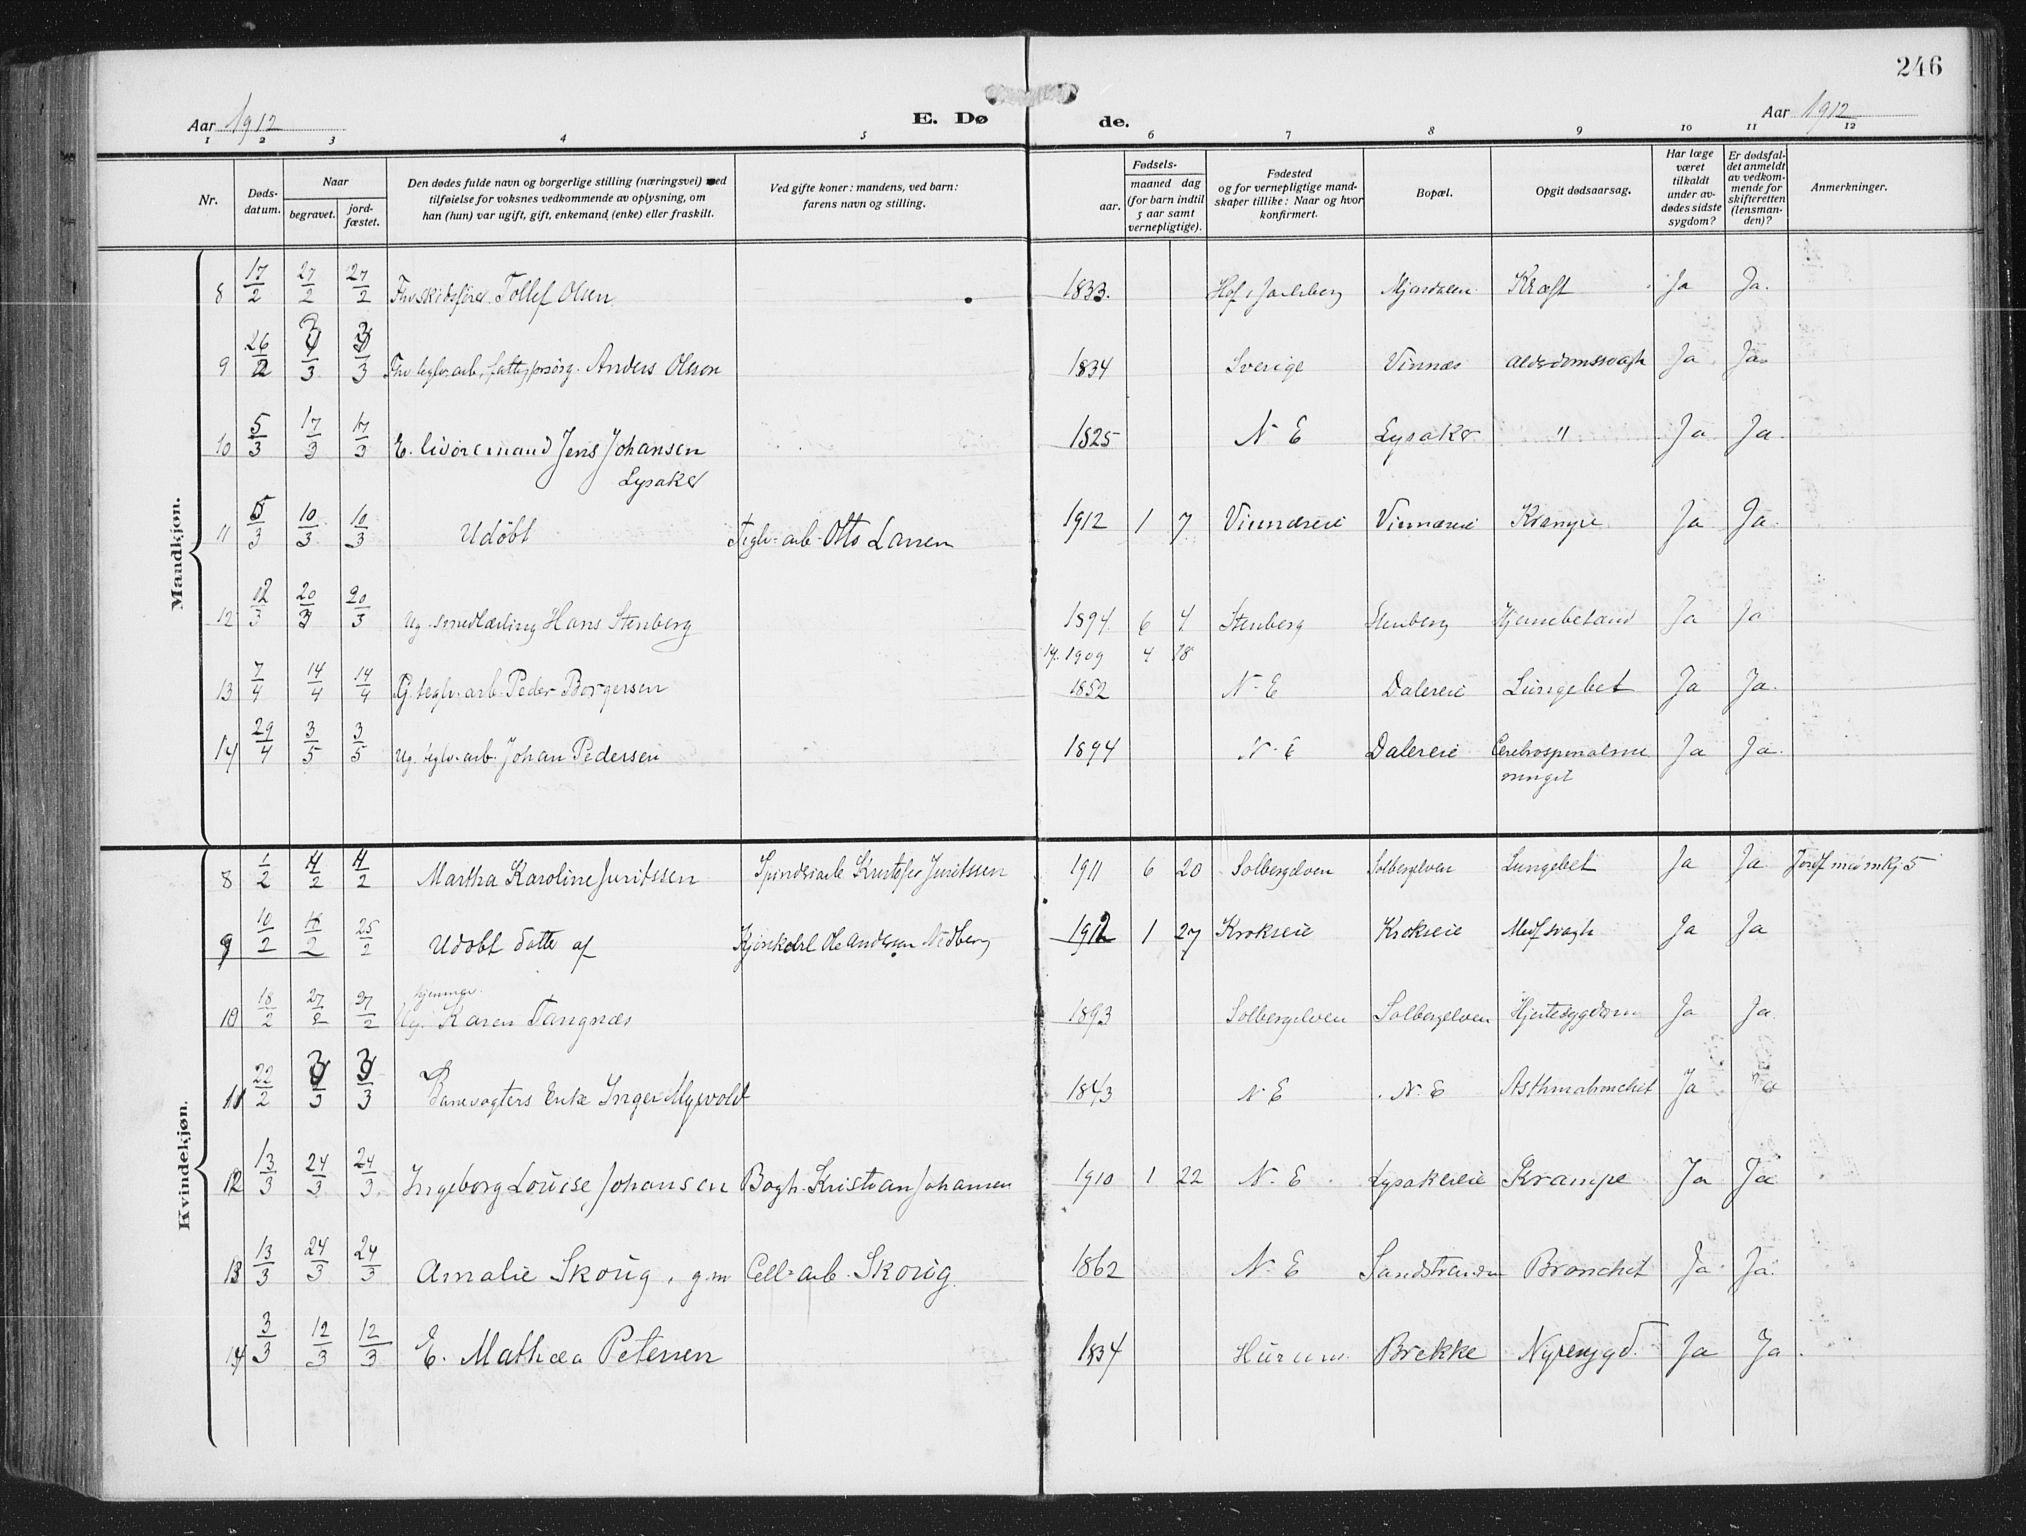 246
Aar 1912
E. Dø de.
Aar 1912
1 2 3 4 5 6 7 8 9 10 11 12
Nr.
Døds-
datum.
Naar
begravet.
jord-
fæstet.
Den dødes fulde navn og borgerlige stilling (næringsvei) med
tilføielse for voksnes vedkommende av oplysning, om
han (hun) var ugift, gift, enkemand (enke) eller fraskilt.
Ved gifte koner: mandens, ved barn:
farens navn og stilling.
Fødsels-
aar.
maaned dag
(for barn indtil
5 aar samt
vernepligtige).
Fødested
og for vernepligtige mand-
skaper tillike: Naar og hvor
konfirmert.
Bopæl.
Opgit dødsaarsag.
Har læge
været
tilkaldt
under av-
dødes sidste
sygdom?
Er dødsfal-
det anmeldt
av vedkom-
mende for
skifteretten
(lensman-
den)?
Anmerkninger.
Mandkjøn.
8 17/2 27/2 27/2 Fhv skibsfører Tollef Olsen 1833. Hof i Jarlsberg Mjøndalen Kræft Ja Ja.
9 26/2 3/3 3/3 Fhv teglv. arb. fattigforsørg. Anders Olsson 1834 Sverige Vinnæs Alderdomssvagh Ja Ja
10 5/3 17/3 17/3 E. Jens Johansen 1825 N. E Lysaker " Ja Ja
Lysaker
11 5/3 10/3 10/3 Udöbt Teglv. arb. Otto Larsen 1912 1 7 Vinnæseie Vinnæseie Krampe Ja Ja.
12 12/3 20/3 20/3 Ug. smedlærling Hans Stenberg 1894 6 4 Stenberg Stenberg Hjernebetænd Ja Ja
1909 4 18
13 7/4 14/4 14/4 G. teglv. arb. Peder Borgersen 1852 N. E Dalereie Lungebet Ja Ja.
14 29/4 3/5 3/5 Ug. teglv. arb. Johan Pedersen 1894 N. E Dalereie Cerebrospinalme Ja Ja.
ninget
Kvindekjøn.
8 1/2 4/2 4/2 Martha Karoline Juritssen Kristofer Juritssen 1911 6 20 Solbergelven Solbergelven Lungebet Ja Ja
9 10/2 25/2 Udöbt datter af Ole Andersen Nedberg 1912 1 27 Krokseie Krokseie Medf svagh Ja Ja
10 18/2 27/2 27/2 Ug. Karen Tangnæs 1893 Solbergelven Solbergelven Hjertesygdom Ja Ja.
11 22/2 3/3 3/3 Banevogters Enke Inger Myrvold 1843 N. E N. E Asthmabronchit Ja Ja
12 13/3 24/3 24/3 Ingeborg Louise Johansen Bogh. Kristian Johansen 1910 1 22 N. E Lysakereie Krampe Ja Ja
13 13/3 24/3 24/3 Amalie Skoug, g.m Cell. arb. Skoug 1862 N. E Sandstranden Bronchit Ja Ja.
14 3/3 12/3 12/3 E. Mathæa Petersen 1834 Hurum Brekke Nyresygd. Ja Ja.